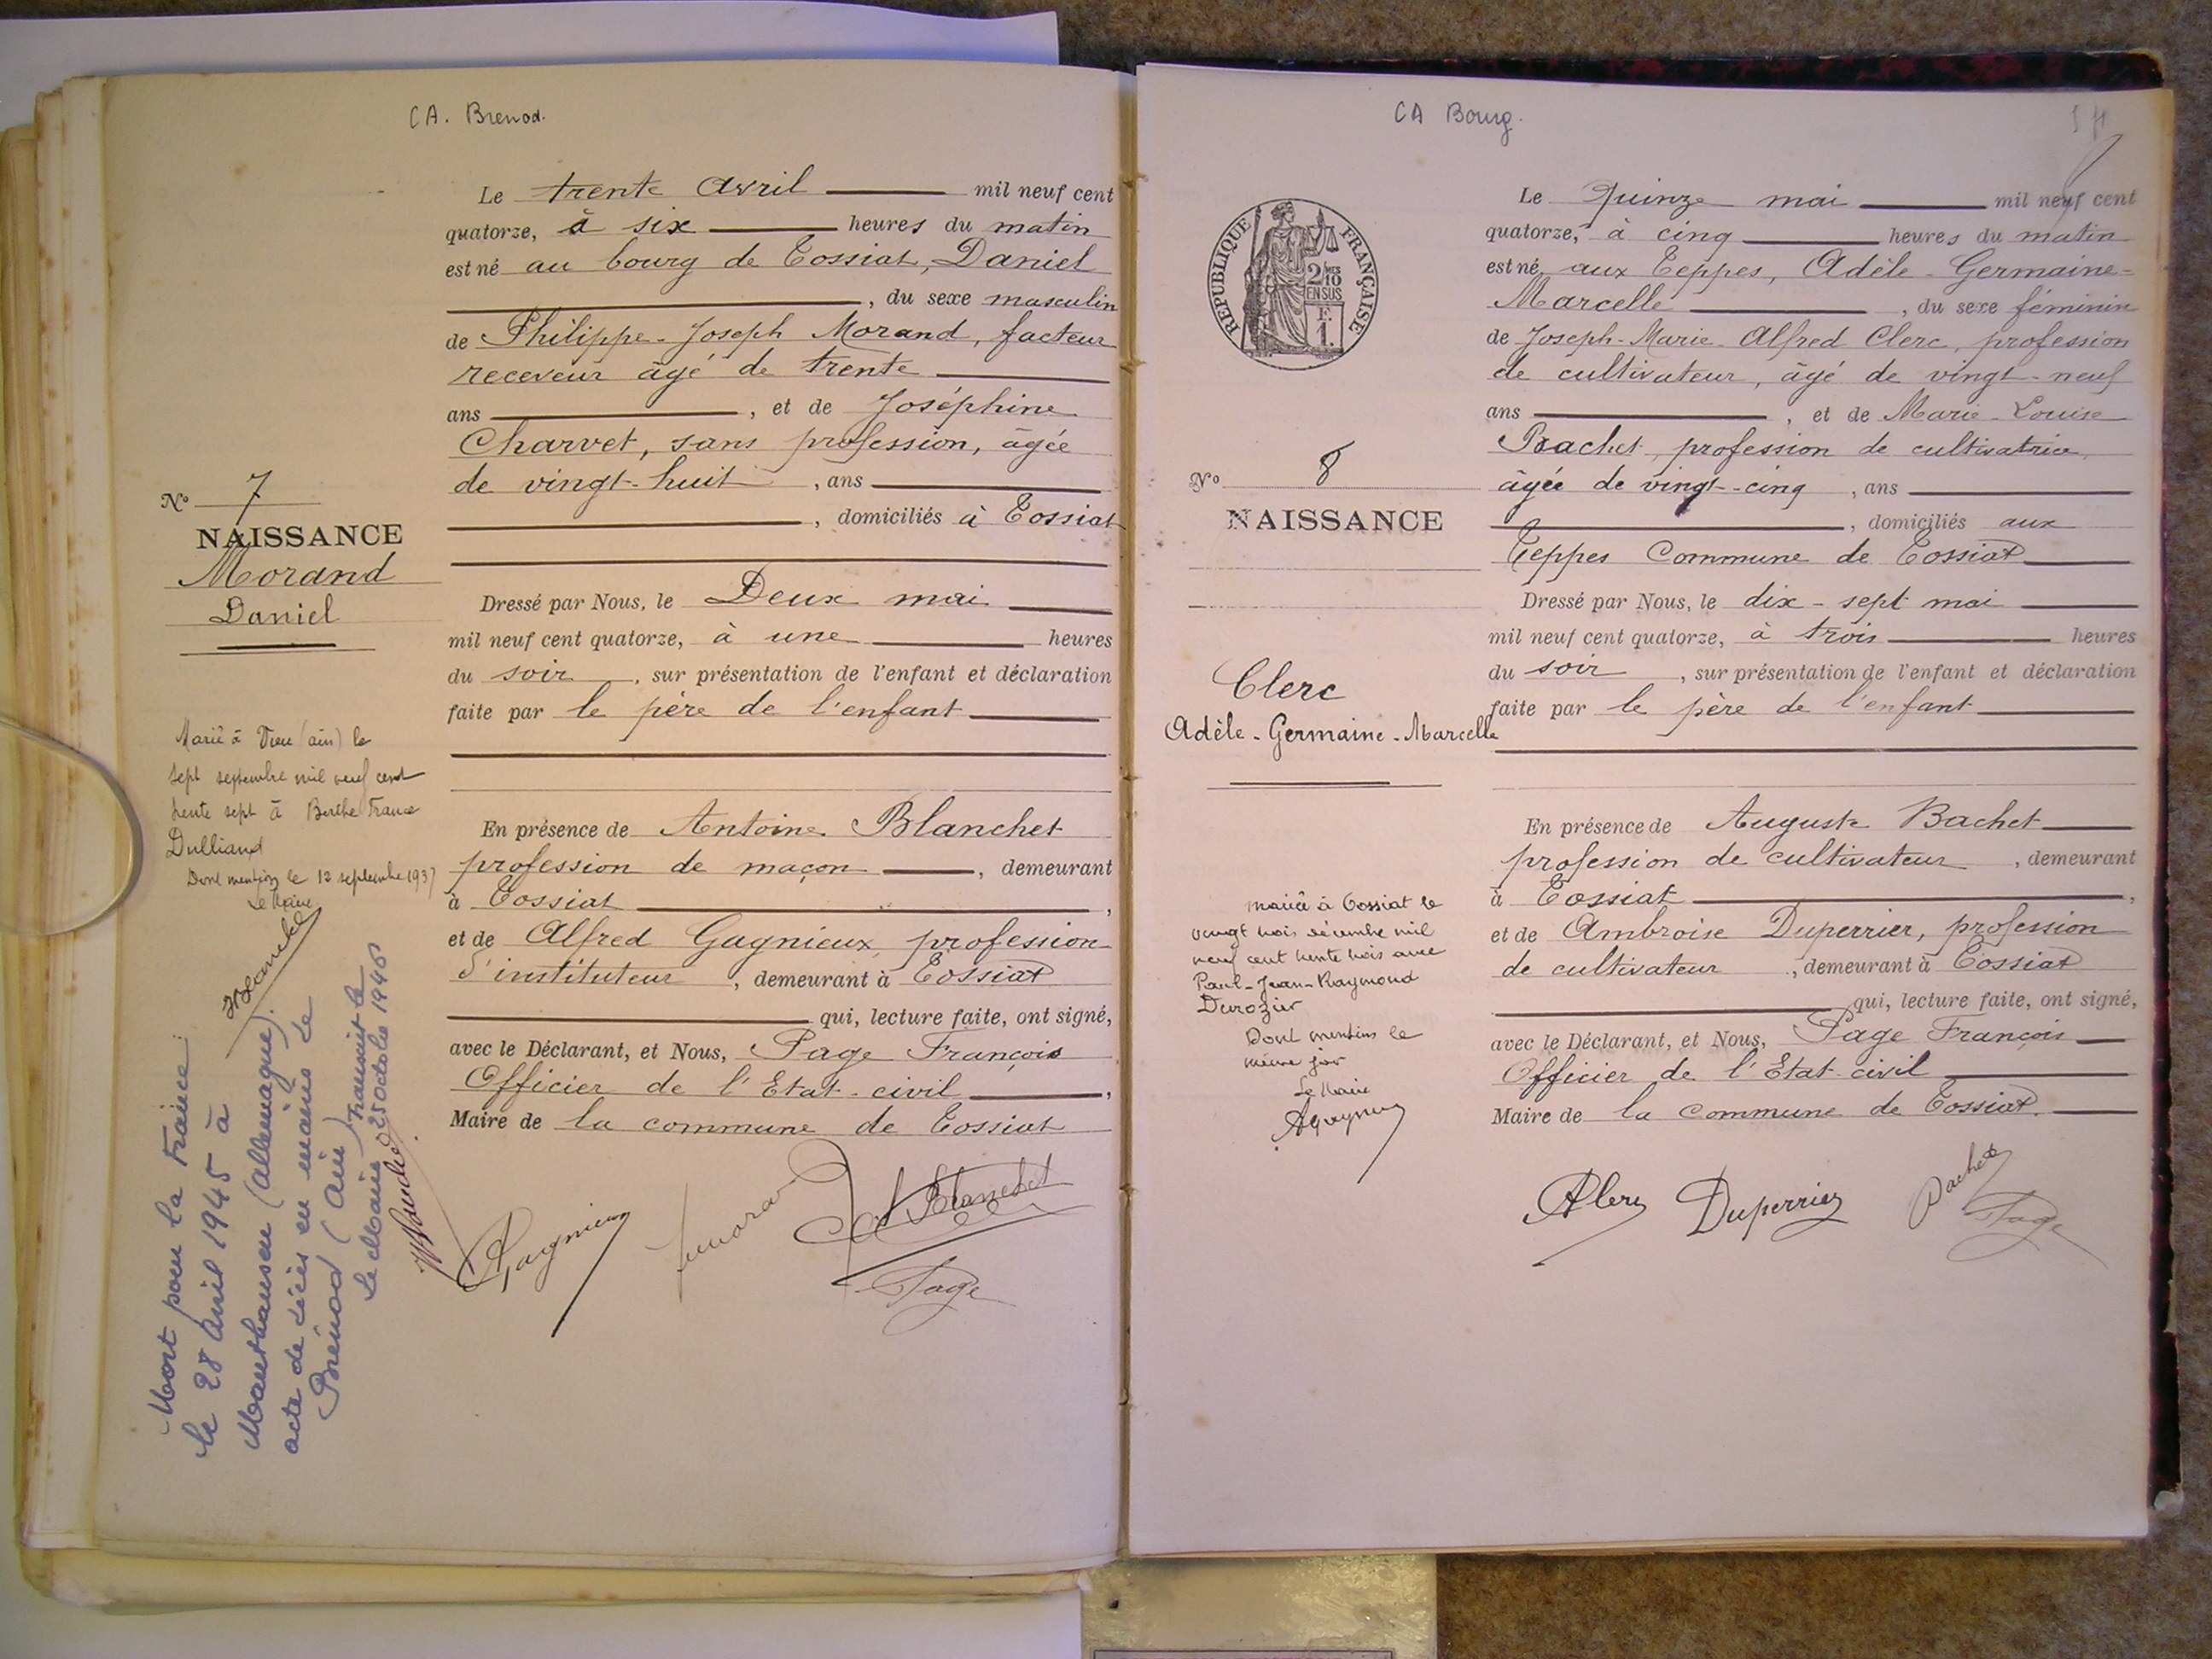 CA. Brenod.
Le trente avril mil neuf cent
quatorze, à six heures du matin
est né au bourg de Tossiat, Daniel
, du sexe masculin
de Philippe-Joseph Morand, facteur
receveur âgé de trente
ans , et de Joséphine
Charvet, sans profession, âgée
de vingt-huit , ans
, domiciliés à Tossiat
Dressé par Nous, le Deux mai
mil neuf cent quatorze, à une heures
du soir , sur présentation de l'enfant et déclaration
faite par le père de l'enfant
En présence de Antoine Blanchet
profession de maçon , demeurant
à Tossiat ,
et de Alfred Gagnieux, profession
d'instituteur , demeurant à Tossiat
qui, lecture faite, ont signé,
avec le Déclarant, et Nous, Page François
Officier de l'Etat-civil ,
Maire de la commune de Tossiat
Gagnieux
Blanchet
Page
No 7
NAISSANCE
Morand
Daniel
Marié à Vieu (ain) le
sept septembre mil neuf cent
trente sept à Berthe France
Dulliand
Dont mention le 12 septembre 1937
Le Maire
Mort pour la France
le 28 avril 1945 à
Mauthausen (allemagne).
acte de décès en mairie de
Brénod (Ain) Transcrit le
Le Maire 25 octobre 1946
CA Bourg.
REPUBLIQUE FRANÇAISE
2/10 EN SUS
F. 1.
Le Quinze mai mil neuf cent
quatorze, à cinq heures du matin
est né aux Teppes, Adèle-Germaine-
Marcelle , du sexe féminin
de Joseph-Marie-Alfred Clerc, profession
de cultivateur, âgé de vingt-neuf
ans , et de Marie-Louise
Bachet, profession de cultivatrice,
âgée de vingt-cinq , ans
, domiciliés aux
Teppes Commune de Tossiat
Dressé par Nous, le dix-sept mai
mil neuf cent quatorze, à trois heures
du soir , sur présentation de l'enfant et déclaration
faite par le père de l'enfant
En présence de Auguste Bachet
profession de cultivateur , demeurant
à Tossiat ,
et de Ambroise Duperrier, profession
de cultivateur , demeurant à Tossiat
qui, lecture faite, ont signé,
avec le Déclarant, et Nous, Page François
Officier de l'Etat-civil
Maire de la commune de Tossiat.
Duperrier
Bachet
Page
No 8
NAISSANCE
Clerc
Adèle-Germaine-Marcelle
mariée à Tossiat le
vingt trois décembre mil
neuf cent trente trois avec
Paul-Jean-Raymond
Durozier
Dont mention le
même jour
Le Maire